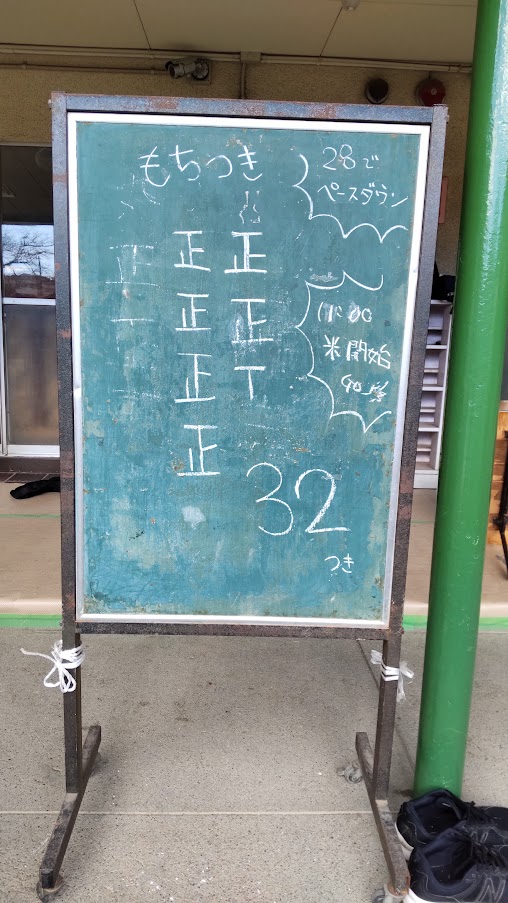 もちつき
28で
ペースダウン
正 正
正 正
正 T
正
11:00
米開始
32
つき